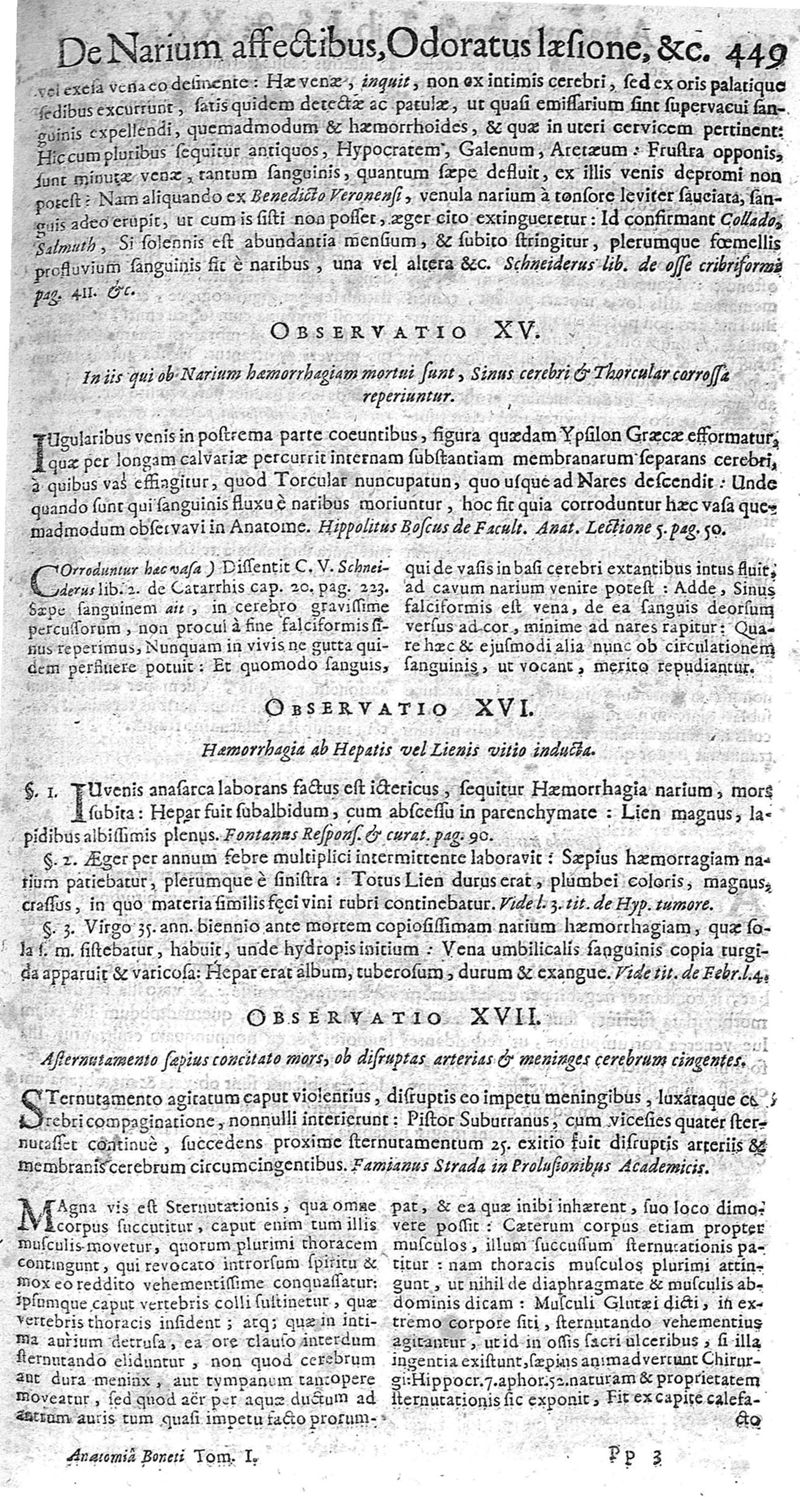 De Narium affectibus, Odoratus læsione, &c. 449
vel exesa vena eo desinente : Hæ venæ, inquit, non ex intimis cerebri, sed ex oris palatique
sedibus excurrunt, satis quidem detectæ ac patulæ, ut quasi emissarium sint supervacui san-
guinis expellendi, quemadmodum & hæmorrhoides, & quæ in uteri cervicem pertinent:
Hic cum pluribus sequitur antiquos, Hypocratem, Galenum, Aretæum : Frustra opponis,
sunt minutæ venæ, tantum sanguinis, quantum sæpe defluit, ex illis venis depromi non
potest : Nam aliquando ex Benedicto Veronensi, venula narium à tonsore leviter sauciata, san-
guis adeo erupit, ut cum is sisti non posset, æger cito extingueretur : Id confirmant Collado,
Salmuth, Si solennis est abundantia mensium, & subito stringitur, plerumque fœmellis
profluvium sanguinis fit è naribus, una vel altera &c. Schneiderus lib. de osse cribriformi
pag. 411. &c.
OBSERVATIO XV.
In iis qui ob Narium hæmorrhagiam mortui sunt, Sinus cerebri & Thorcular corrossa
reperiuntur.
IUgularibus venis in postrema parte coeuntibus, figura quædam Ypsilon Græcæ efformatur,
quæ per longam calvariæ percurrit internam substantiam membranarum separans cerebri,
à quibus vas effingitur, quod Torcular nuncupatun, quo usque ad Nares descendit : Unde
quando sunt qui sanguinis fluxu è naribus moriuntur, hoc fit quia corroduntur hæc vasa que-
madmodum observavi in Anatome. Hippolitus Boscus de Facult. Anat. Lectione 5. pag. 50.
COrroduntur hac vasa ) Dissentit C. V. Schnei-
derus lib. 2. de Catarrhis cap. 20. pag. 223.
Sæpe sanguinem ait, in cerebro gravissime
percussorum, non procul à fine falciformis si-
nus reperimus, Nunquam in vivis ne gutta qui-
dem perfluere potuit : Et quomodo sanguis,
qui de vasis in basi cerebri extantibus intus fluit,
ad cavum narium venire potest : Adde, Sinus
falciformis est vena, de ea sanguis deorsum
versus ad cor, minime ad nares rapitur : Qua-
re hæc & ejusmodi alia nunc ob circulationem
sanguinis, ut vocant, merito repudiantur.
OBSERVATIO XVI.
Hæmorrhagia ab Hepatis vel Lienis vitio inducta.
§. 1. IUvenis anasarca laborans factus est ictericus, sequitur Hæmorrhagia narium, mors
subita : Hepar fuit subalbidum, cum abscessu in parenchymate : Lien magnus, la-
pidibus albissimis plenus. Fontanus Respons. & curat. pag. 90.
§. 2. Æger per annum febre multiplici intermittente laboravit : Sæpius hæmorragiam na-
rium patiebatur, plerumque è sinistra : Totus Lien durus erat, plumbei coloris, magnus,
crassus, in quo materia similis fęci vini rubri continebatur. Vide l. 3. tit. de Hyp. tumore.
§. 3. Virgo 35. ann. biennio ante mortem copiosissimam narium hæmorrhagiam, quæ so-
la s. m. sistebatur, habuit, unde hydropis initium : Vena umbilicalis sanguinis copia turgi-
da apparuit & varicosa: Hepar erat album, tuberosum, durum & exangue. Vide tit. de Febr. l. 4.
OBSERVATIO XVII.
A sternutamento sæpius concitato mors, ob disruptas arterias & meninges cerebrum cingentes.
STernutamento agitatum caput violentius, disruptis eo impetu meningibus, luxataque ce-
rebri compaginatione, nonnulli interierunt : Pistor Suburranus, cum vicesies quater ster-
nutasset continuè, succedens proxime sternutamentum 25. exitio fuit disruptis arteriis &
membranis cerebrum circumcingentibus. Famianus Strada in Prolusionibus Academicis.
MAgna vis est Sternutationis, qua omne
corpus succutitur, caput enim tum illis
musculis movetur, quorum plurimi thoracem
contingunt, qui revocato introrsum spiritu &
mox eo reddito vehementissime conquassatur:
ipsumque caput vertebris colli sustinetur, quæ
vertebris thoracis insident ; atq; quæ in inti-
ma aurium detrusa, ea ore clauso interdum
sternutando eliduntur, non quod cerebrum
aut dura meninx, aut tympanum tantopere
moveatur, sed quod aër per aquæ ductum ad
antrum auris tum quasi impetu facto prorum-
pat, & ea quæ inibi inhærent, suo loco dimo-
vere possit : Cæterum corpus etiam propter
musculos, illum succussum sternutationis pa-
titur : nam thoracis musculos plurimi attin-
gunt, ut nihil de diaphragmate & musculis ab-
dominis dicam : Musculi Glutæi dicti, in ex-
tremo corpore siti, sternutando vehementius
agitantur, ut id in ossis sacri ulceribus, si illa
ingentia existunt, sæpius animadvertunt Chirur-
gi: Hippocr. 7. aphor. 52. naturam & proprietatem
sternutationis sic exponit, Fit ex capite calefa-
cto
Anatomiâ Boneti Tom. I.
Pp 3